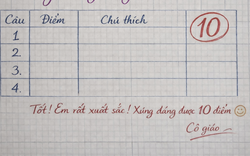 Câu Điểm Chú thích 10
1
2
3.
4.
Tốt! Em rất xuất sắc! Xứng đáng được 10 điểm
Cô giáo